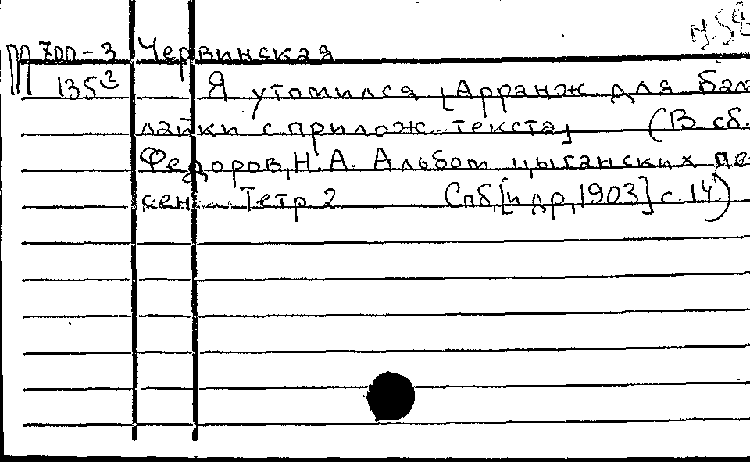 М.58
М 700-3 Червинская
135² Я утомился [Арранж. для бала
лайки с прилож. текста] (В сб.
Федоров, Н.А. Альбом цыганских пе
сен. Тетр 2 Спб, [и др, 1903] с. 14)